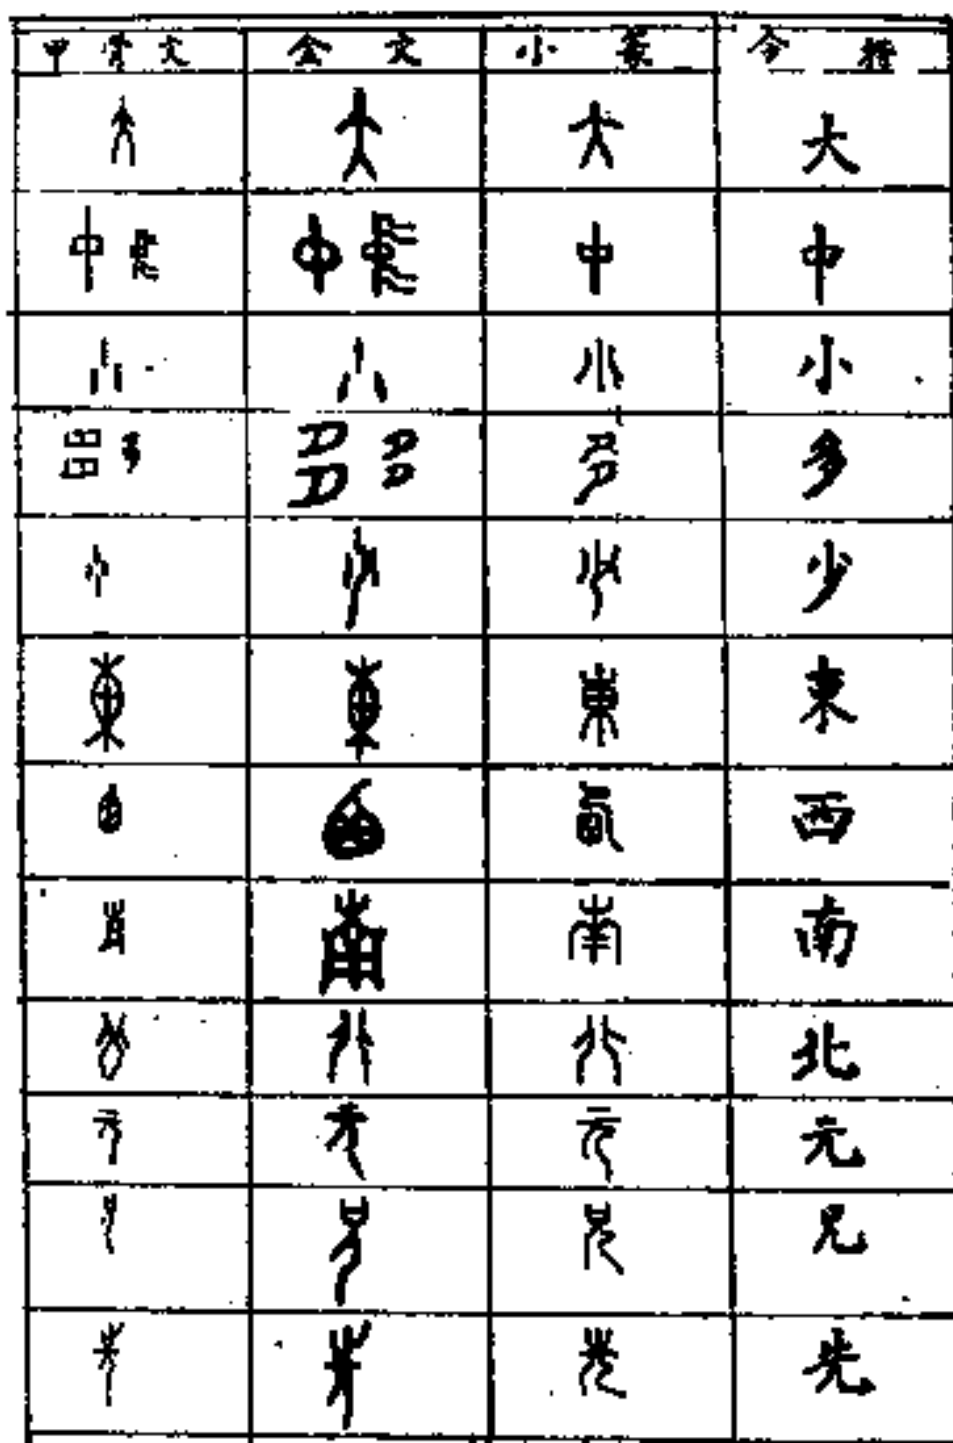 甲骨文 金文 小篆 今楷
大 大 大 大
中 中 中 中 中 中
小 小 小 小
多 多 多 多 多 多
少 少 少 少
東 東 東 東
西 西 西 西
南 南 南 南
北 北 北 北
元 元 元 元
兄 兄 兄 兄
先 先 先 先